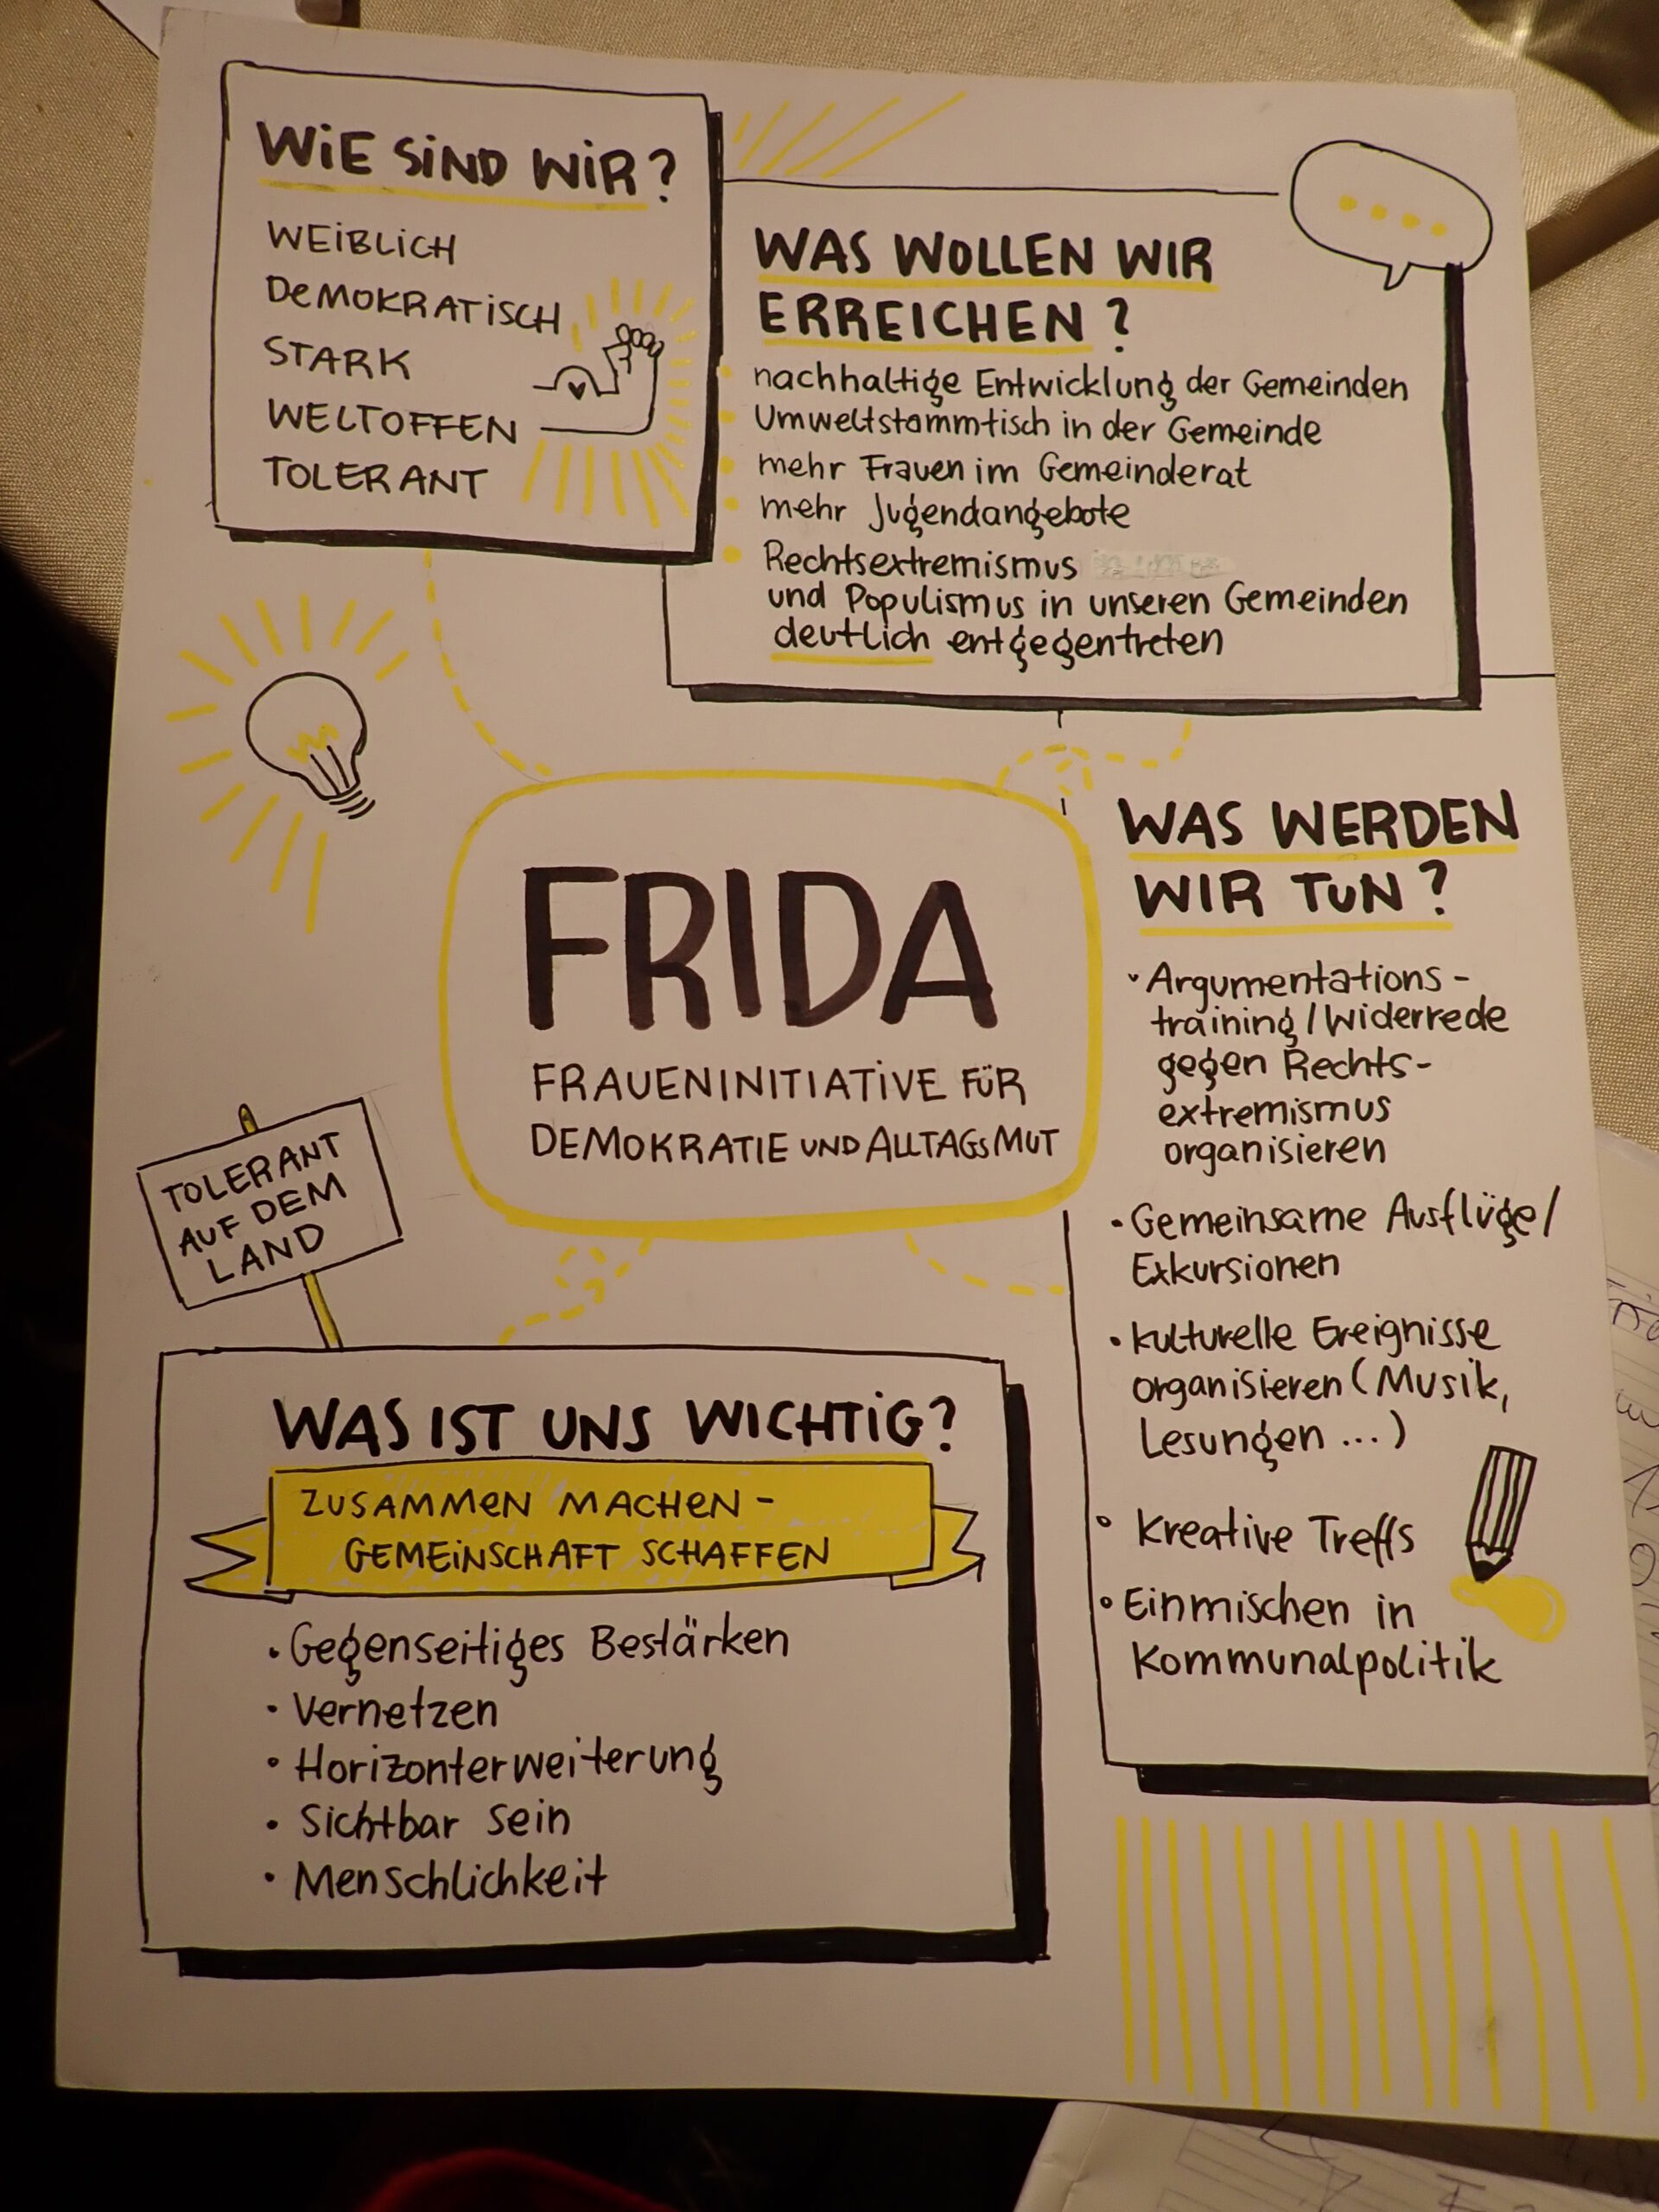 WIE SIND WIR?
WEIBLICH
DEMOKRATISCH
STARK
WELTOFFEN
TOLERANT
WAS WOLLEN WIR
ERREICHEN?
nachhaltige Entwicklung der Gemeinden
Umweltstammtisch in der Gemeinde
mehr Frauen im Gemeinderat
mehr Jugendangebote
Rechtsextremismus
und Populismus in unseren Gemeinden
deutlich entgegentreten
FRIDA
FRAUENINITIATIVE FÜR
DEMOKRATIE UND ALLTAGSMUT
TOLERANT
AUF DEM
LAND
WAS WERDEN
WIR TUN?
• Argumentations-
training / Widerrede
gegen Rechts-
extremismus
organisieren
• Gemeinsame Ausflüge/
Exkursionen
• kulturelle Ereignisse
organisieren (Musik,
Lesungen ...)
• Kreative Treffs
• Einmischen in
Kommunalpolitik
WAS IST UNS WICHTIG?
ZUSAMMEN MACHEN -
GEMEINSCHAFT SCHAFFEN
• Gegenseitiges Bestärken
• Vernetzen
• Horizonterweiterung
• Sichtbar sein
• Menschlichkeit